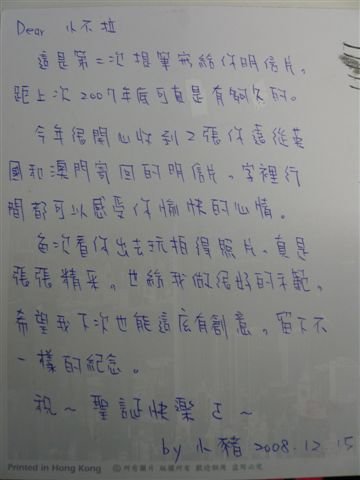 Dear 小不拉
這是第二次提筆寫給你明信片。
距上次2007年底可真是有夠久的。
今年很開心收到2張你遠從英
國和澳門寄回的明信片。字裡行
間都可以感受你愉快的心情。
每次看你出去玩拍得照片,真是
張張精采。也給我做很好的示範。
希望我下次也能這麼有創意,留下不
一樣的紀念。
祝~聖誕快樂
~
by 小豬 2008.12.15
Printed in Hong Kong
© 所有圖片 版權所有 歡迎翻選 盜印必究